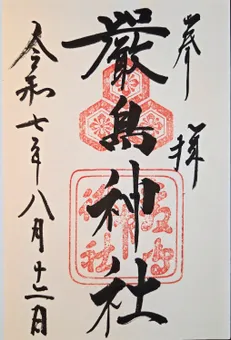 奉拝
厳島神社
令和七年八月十二日